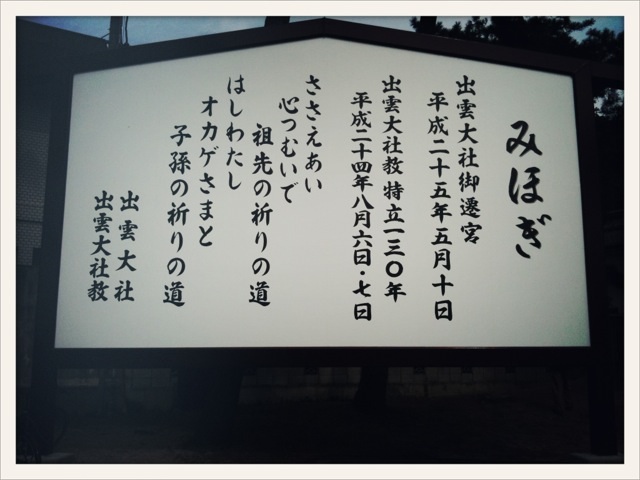 みほぎ
出雲大社御遷宮
平成二十五年五月十日
出雲大社教特立一三〇年
平成二十四年八月六日・七日
ささえあい
心つむいで
祖先の祈りの道
はしわたし
オカゲさまと
子孫の祈りの道
出雲大社
出雲大社教